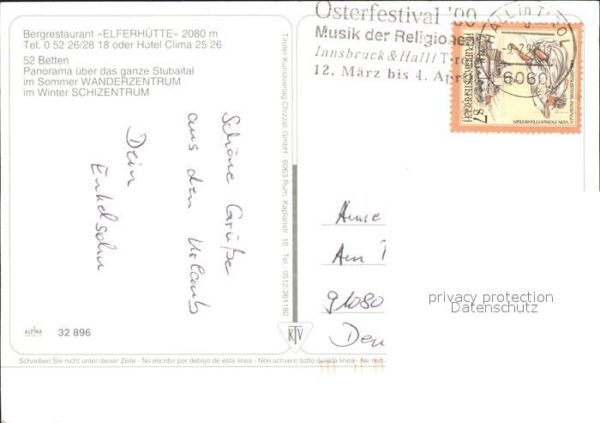 Bergrestaurant »ELFERHÜTTE« 2080 m
Tel. 0 52 26/28 18 oder Hotel Clima 25 26
52 Betten
Panorama über das ganze Stubaital
im Sommer WANDERZENTRUM
im Winter SCHIZENTRUM
Schöne Grüße
aus dem Urlaub
Dein
Enkelsohn
ALPINA
32 896
Tiroler Kunstverlag Chizzali GmbH · 6063 Rum, Kaplanstr. 16 · Tel. 0512 261180
KTV
Schreiben Sie nicht unter dieser Zeile - No escribir por debajo de esta linea - Non scrivere sotto questa linea - Ne
Osterfestival '00
Musik der Religionen
Innsbruck & Hall i Tirol
12. März bis 4. April
HALL in TIROL
6060
REPUBLIK ÖSTERREICH
87
Am
91080
privacy protection
Datenschutz